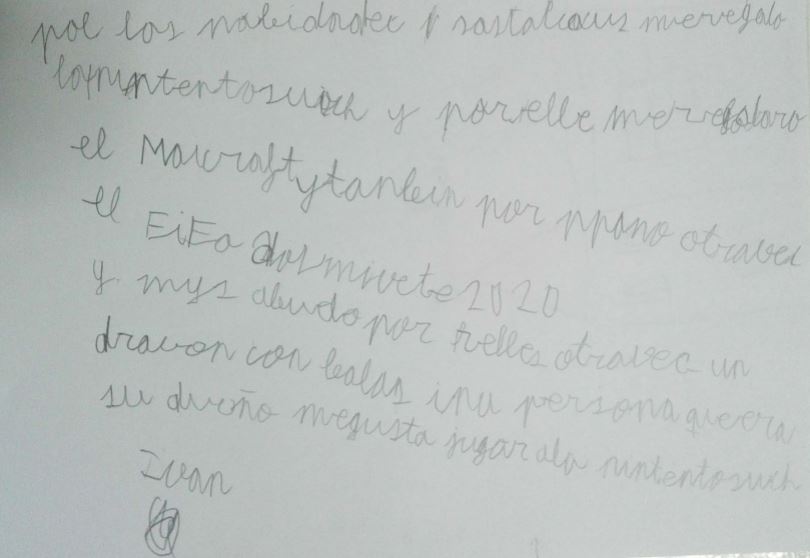 pol los nabidadec y sastalcaus meregalo
lanintentosuich y porelle meregalaro
el Maicraft y tanbein por ppano otravec
el EiEo dosmivete 2020
y mys abudo por relles otravec un
dravon con balas inu persona queera
su dueño megusta jugar ala nintentosuich
Ivan